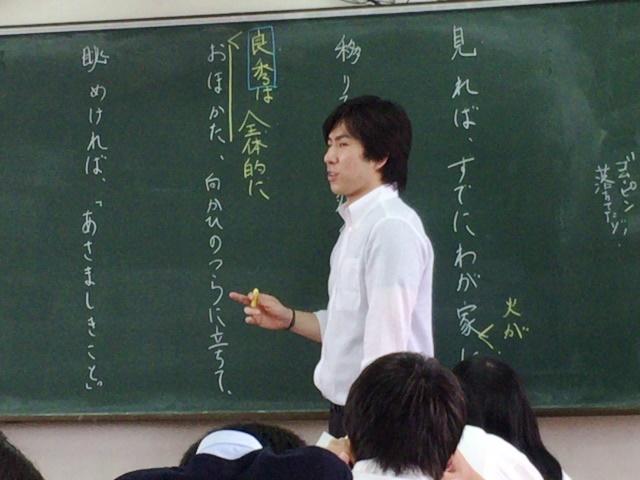 火が
見れば、すでにわが家に
移り
良秀は 全体的に
おほかた、向かひのつらに立ちて、
眺めければ、「あさましきこと。」